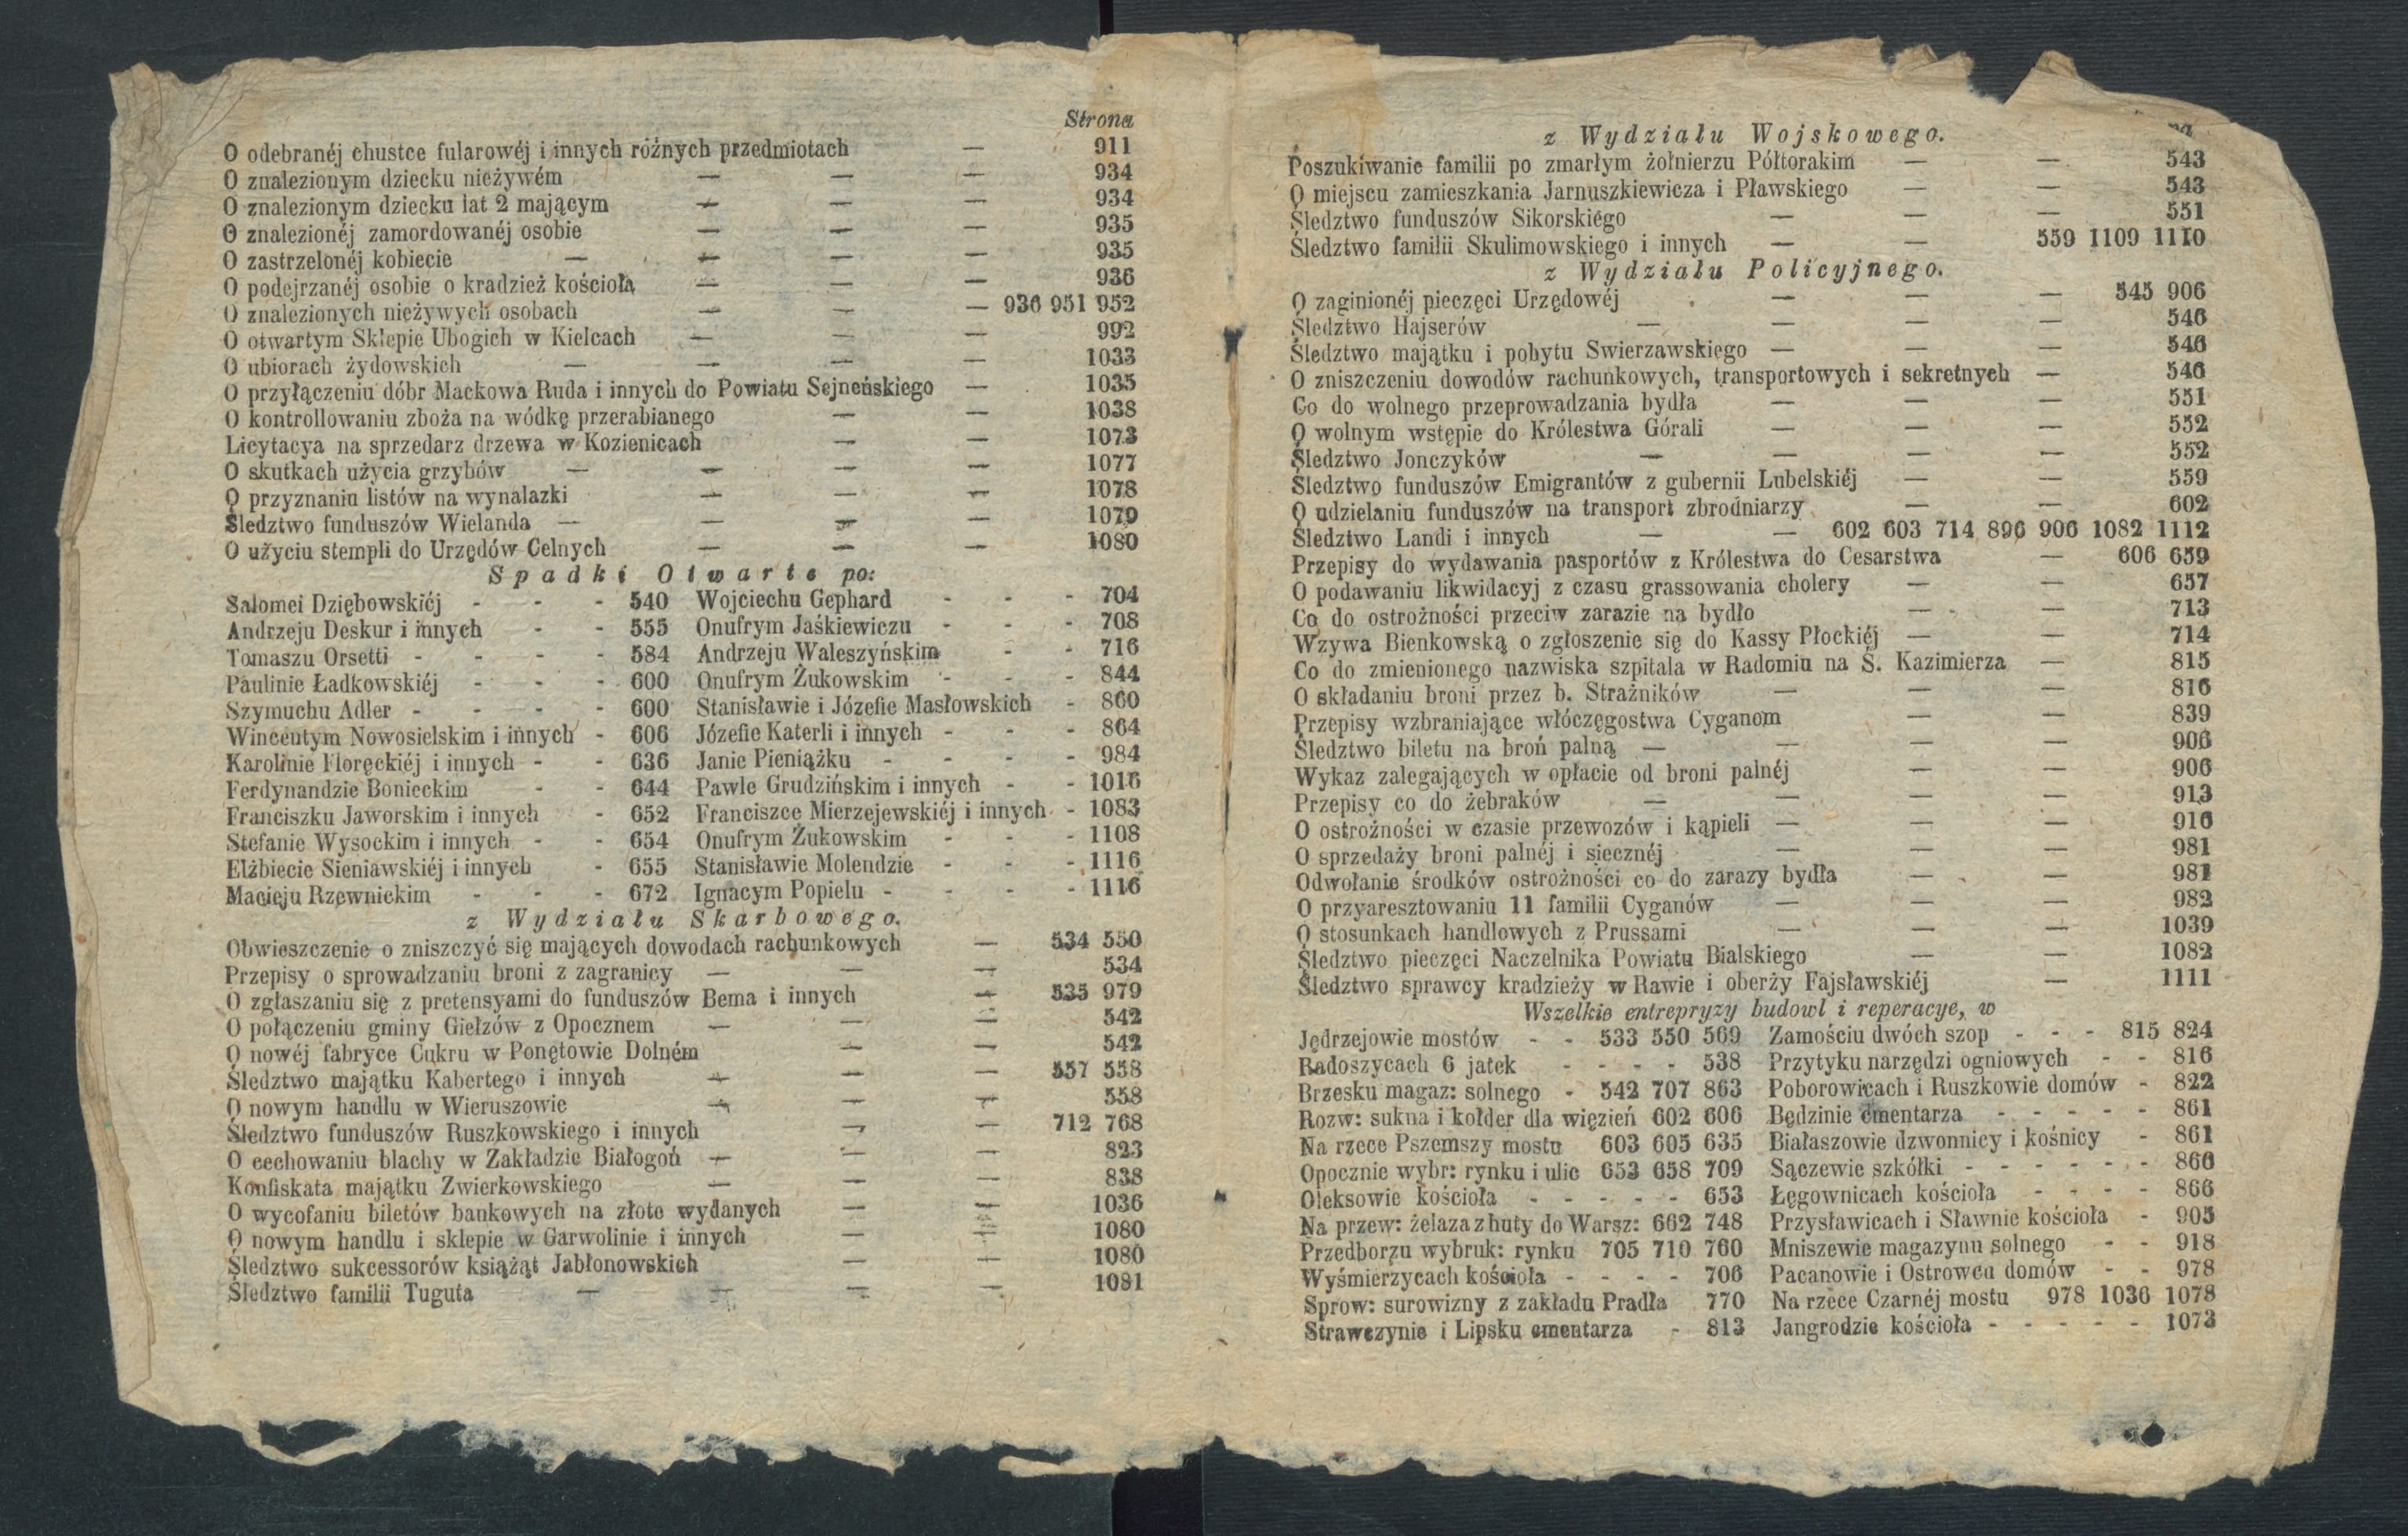 Strona
O odebranéj chustce fularowéj i innych różnych przedmiotach — 911
O znalezionym dziecku nieżywém — — — 934
O znalezionym dziecku lat 2 mającym — — — 934
O znalezionéj zamordowanéj osobie — — — 935
O zastrzelonéj kobiecie — — — — 935
O podejrzanéj osobie o kradzież kościoła — — — 936
O znalezionych nieżywych osobach — — — 936 951 952
O otwartym Sklepie Ubogich w Kielcach — — — 992
O ubiorach żydowskich — — — — 1033
O przyłączeniu dóbr Maćkowa Ruda i innych do Powiatu Sejneńskiego — 1035
O kontrollowaniu zboża na wódkę przerabianego — — 1038
Licytacya na sprzedarz drzewa w Kozienicach — — 1073
O skutkach użycia grzybów — — — — 1077
O przyznaniu listów na wynalazki — — — 1078
Śledztwo funduszów Wielanda — — — — 1079
O użyciu stempli do Urzędów Celnych — — — 1080
Spadki Otwarte po:
Salomei Dziębowskiéj - - - 540 Wojciechu Gephard - - - 704
Andrzeju Deskur i innych - - 555 Onufrym Jaśkiewiczu - - - 708
Tomaszu Orsetti - - - - 584 Andrzeju Waleszyńskim - - 716
Paulinie Ładkowskiéj - - - 600 Onufrym Żukowskim - - - 844
Szymuchu Adler - - - - 600 Stanisławie i Józefie Masłowskich - 860
Wincentym Nowosielskim i innych - 606 Józefie Katerli i innych - - - 864
Karolinie Floręckiéj i innych - - 636 Janie Pieniążku - - - - 984
Ferdynandzie Bonieckim - - 644 Pawle Grudzińskim i innych - - 1016
Franciszku Jaworskim i innych - 652 Franciszce Mierzejewskiéj i innych - 1083
Stefanie Wysockim i innych - - 654 Onufrym Żukowskim - - - 1108
Elżbiecie Sieniawskiéj i innych - 655 Stanisławie Molendzie - - - 1116
Macieju Rzewnickim - - - 672 Ignacym Popielu - - - - 1116
z Wydziału Skarbowego.
Obwieszczenie o zniszczyć się mających dowodach rachunkowych — 534 550
Przepisy o sprowadzaniu broni z zagranicy — — — 534
O zgłaszaniu się z pretensyami do funduszów Bema i innych — 535 979
O połączeniu gminy Giełzów z Opocznem — — — 542
O nowéj fabryce Cukru w Ponętowie Dolném — — 542
Śledztwo majątku Kabertego i innych — — — 557 558
O nowym handlu w Wieruszowie — — — 558
Śledztwo funduszów Ruszkowskiego i innych — — 712 768
O cechowaniu blachy w Zakładzie Białogoń — — — 823
Konfiskata majątku Zwierkowskiego — — — 838
O wycofaniu biletów bankowych na złote wydanych — — 1036
O nowym handlu i sklepie w Garwolinie i innych — — 1080
Śledztwo sukcessorów książąt Jabłonowskich — — 1080
Śledztwo familii Tuguta — — — — 1081
z Wydziału Wojskowego.
Poszukiwanie familii po zmarłym żołnierzu Półtorakim — — 543
O miejscu zamieszkania Jarnuszkiewicza i Pławskiego — — 543
Śledztwo funduszów Sikorskiégo — — — 551
Śledztwo familii Skulimowskiego i innych — — 559 1109 1110
z Wydziału Policyjnego.
O zaginionéj pieczęci Urzędowéj — — — 545 906
Śledztwo Hajserów — — — — 546
Śledztwo majątku i pobytu Swierzawskiego — — — 546
O zniszczeniu dowodów rachunkowych, transportowych i sekretnych — 546
Co do wolnego przeprowadzania bydła — — — 551
O wolnym wstępie do Królestwa Górali — — — 552
Śledztwo Jonczyków — — — — 552
Śledztwo funduszów Emigrantów z gubernii Lubelskiéj — — 559
O udzielaniu funduszów na transport zbrodniarzy — — 602
Śledztwo Landi i innych — — 602 603 714 896 906 1082 1112
Przepisy do wydawania pasportów z Królestwa do Cesarstwa — 606 659
O podawaniu likwidacyj z czasu grassowania cholery — — 657
Co do ostrożności przeciw zarazie na bydło — — 713
Wzywa Bienkowską o zgłoszenie się do Kassy Płockiéj — — 714
Co do zmienionego nazwiska szpitala w Radomiu na Ś. Kazimierza — 815
O składaniu broni przez b. Strażników — — — 816
Przepisy wzbraniające włóczęgostwa Cyganom — — 839
Śledztwo biletu na broń palną — — — — 906
Wykaz zalegających w opłacie od broni palnéj — — 906
Przepisy co do żebraków — — — — 913
O ostrożności w czasie przewozów i kąpieli — — — 916
O sprzedaży broni palnéj i siecznéj — — — 981
Odwołanie środków ostrożności co do zarazy bydła — — 981
O przyaresztowaniu 11 familii Cyganów — — — 982
O stosunkach handlowych z Prussami — — — 1039
Śledztwo pieczęci Naczelnika Powiatu Bialskiego — — 1082
Śledztwo sprawcy kradzieży w Rawie i oberży Fajsławskiéj — 1111
Wszelkie entrepryzy budowl i reperacye, w
Jędrzejowie mostów - - 533 550 569 Zamościu dwóch szop - - - 815 824
Radoszycach 6 jatek - - - - 538 Przytyku narzędzi ogniowych - - 816
Brzesku magaz: solnego - 542 707 863 Poborowicach i Ruszkowie domów - 822
Rozw: sukna i kołder dla więzień 602 606 Będzinie cmentarza - - - - - 861
Na rzece Pszemszy mostu 603 605 635 Białaszowie dzwonnicy i kośnicy - 861
Opocznie wybr: rynku i ulic 653 658 709 Sączewie szkółki - - - - - - 866
Oleksowie kościoła - - - - - 653 Łęgownicach kościoła - - - - 866
Na przew: żelaza z huty do Warsz: 662 748 Przysławicach i Sławnie kościoła - 905
Przedborzu wybruk: rynku 705 710 760 Mniszewie magazynu solnego - - 918
Wyśmierzycach kościoła - - - - 706 Pacanowie i Ostrowcu domów - - 978
Sprow: surowizny z zakładu Pradła 770 Na rzece Czarnéj mostu 978 1036 1078
Strawczynie i Lipsku cmentarza - 813 Jangrodzie kościoła - - - - - 1073